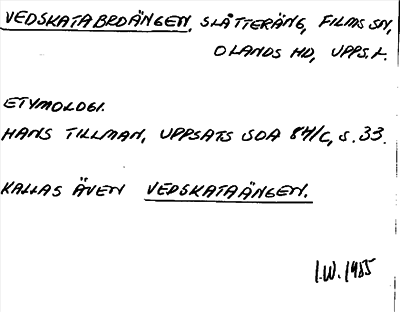 VEDSKATABRDÄNGEN, SLÅTTERÄNG, FILMS SN,
OLANDS HD, UPPS. L.
ETYMOLOGI.
HANS TILLMAN, UPPSATS SOA 84/C, S. 33.
KALLAS ÄVEN VEDSKATAÄNGEN.
I.W. 1985